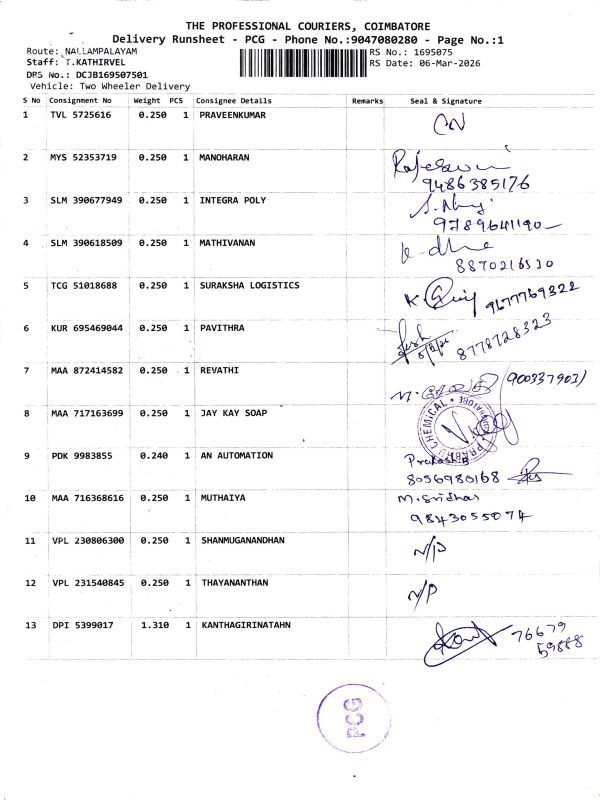 THE PROFESSIONAL COURIERS, COIMBATORE
Delivery Runsheet - PCG - Phone No.:9047080280 - Page No.:1
Route: NALLAMPALAYAM RS No.: 1695075
Staff: T.KATHIRVEL RS Date: 06-Mar-2026
DRS No.: DCJB169507501
Vehicle: Two Wheeler Delivery
S No Consignment No Weight PCS Consignee Details Remarks Seal & Signature
1 TVL 5725616 0.250 1 PRAVEENKUMAR CN
2 MYS 52353719 0.250 1 MANOHARAN Rajeswari
9486385176
3 SLM 390677949 0.250 1 INTEGRA POLY
9789641190
4 SLM 390618509 0.250 1 MATHIVANAN
8870216530
5 TCG 51018688 0.250 1 SURAKSHA LOGISTICS 9677769322
6 KUR 695469044 0.250 1 PAVITHRA 8778728323
7 MAA 872414582 0.250 1 REVATHI 9003379031
8 MAA 717163699 0.250 1 JAY KAY SOAP
PRABHU CHEMICAL
9 PDK 9983855 0.240 1 AN AUTOMATION Prakash
8056980168
10 MAA 716368616 0.250 1 MUTHAIYA M. Sridhar
9843055074
11 VPL 230806300 0.250 1 SHANMUGANANDHAN N/P
12 VPL 231540845 0.250 1 THAYANANTHAN N/P
13 DPI 5399017 1.310 1 KANTHAGIRINATAHN 76679
59888
PCG